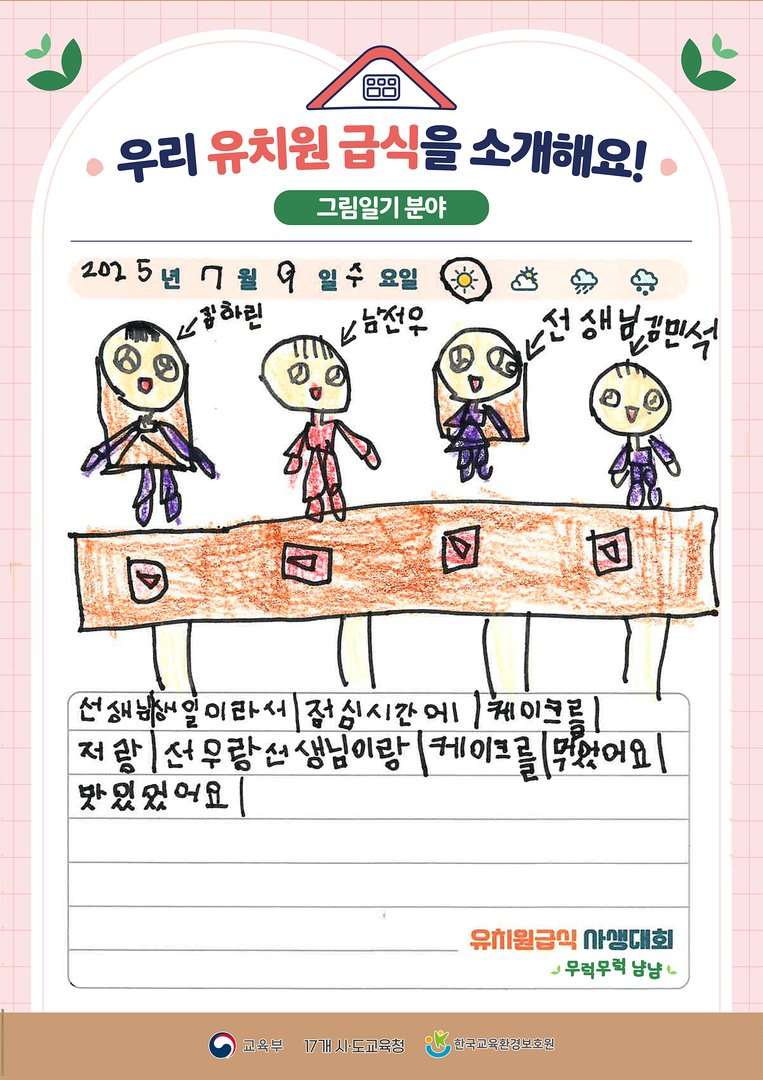 우리 유치원 급식을 소개해요!
그림일기 분야
2025년 7월 9일 수요일
김하린
남선우
선생님
김민석
선생님생일이라서 점심시간에 케이크를
저랑 선우랑선생님이랑 케이크를 먹었어요
맛있었어요
유치원급식 사생대회
무럭무럭 냠냠
교육부 17개 시·도교육청 한국교육환경보호원